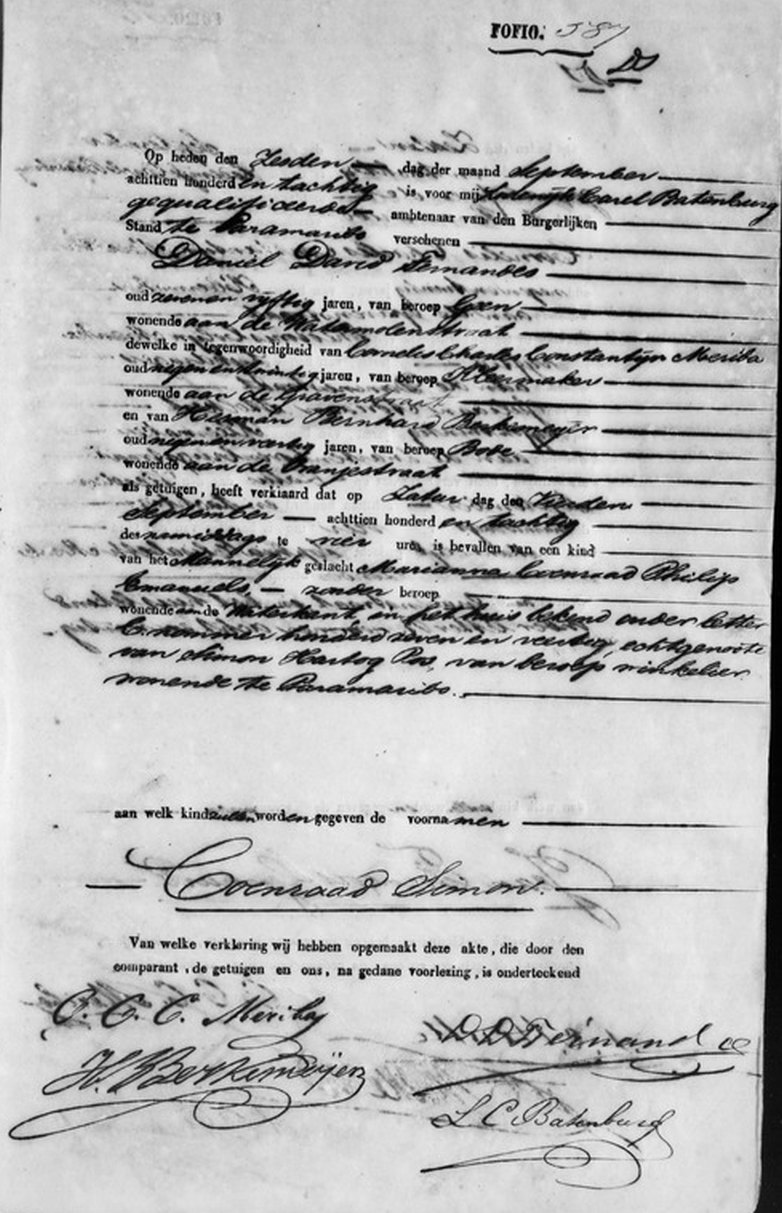 FOFIO. 587
DS
Op heden den Zesden dag der maand September
achttien honderd en tachtig is voor mij Lodewijk Carel Batenburg
gequalificeerde ambtenaar van den Burgerlijken
Stand te Paramaribo verschenen
Daniel David Fernandes
oud zeven en vijftig jaren, van beroep Geen
wonende aan de Watermolenstraat
dewelke in tegenwoordigheid van Cornelis Charles Constantijn Meriba
oud negen en twintig jaren, van beroep Kleermaker
wonende aan de Gravenstraat
en van Herman Bernhard Berkemeyer
oud negen en veertig jaren, van beroep Bode
wonende aan de Oranjestraat
als getuigen, heeft verklaard dat op Zatur dag den Vierden
September achttien honderd en tachtig
des namiddags te vier uren is bevallen van een kind
van het Mannelijk geslacht Marianna Coenraad Philip
Emanuels, zonder beroep
wonende aan de Waterkant, in het huis bekend onder letter
C nummer honderd zeven en veertig, echtgenoote
van Simon Hartog Pos, van beroep winkelier
wonende te Paramaribo.
aan welk kind zullen worden gegeven de voornamen
Coenraad Simon.
Van welke verklaring wij hebben opgemaakt deze akte, die door den
comparant, de getuigen en ons, na gedane voorlezing, is onderteekend
C. C. C. Meriba
D D Fernandes
H. B Berkemeijer
L C Batenburg